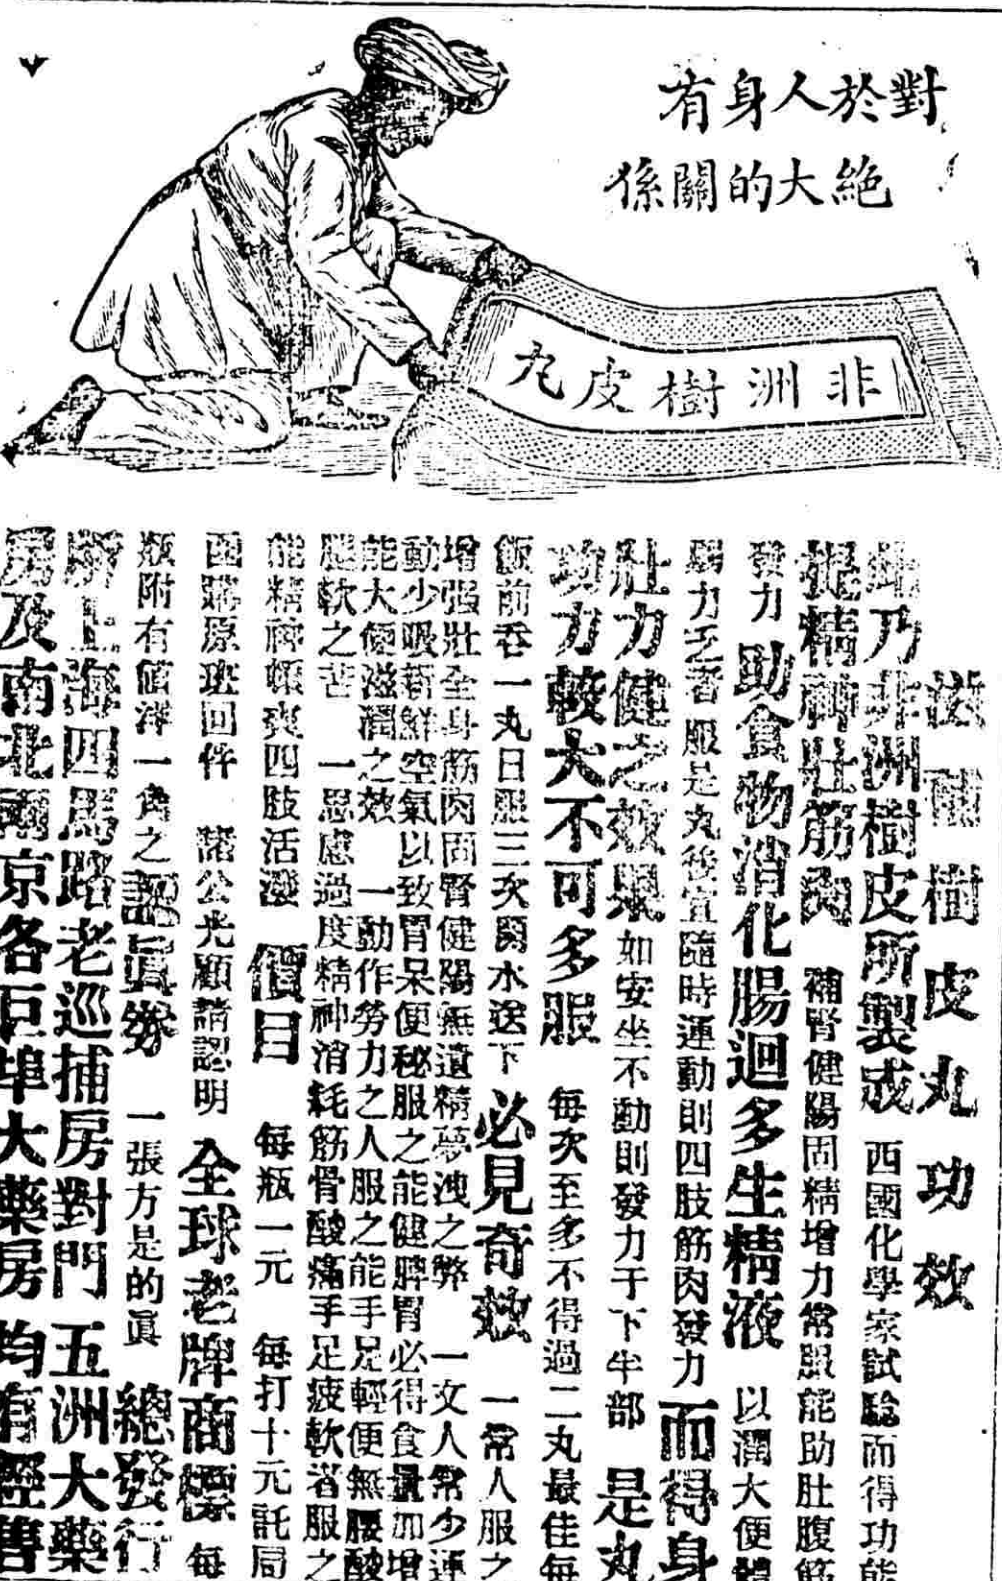 對於人身有
絕大的關係
非洲樹皮丸
樹皮丸功效
此乃非洲樹皮所製成 西國化學家試驗而得功能
提精神壯筋肉 補腎健陽固精增力常服能助肚腹筋
發力 助食物消化腸迴多生精液 以潤大便體
力乏者服是丸後宜隨時運動則四肢筋肉發力 而得身
壯力健之效果 如安坐不動則發力于下半部 是丸
功力較大不可多服 每次至多不得過二丸最佳每
飯前吞一丸日服三次開水送下 必見奇效 一常人服之
增强壯全身筋肉固腎健陽無遺精夢洩之弊 一文人常少運
動少吸新鮮空氣以致胃呆便秘服之能健脾胃必得食量加增
能大便滋潤之效 一動作勞力之人服之能手足輕便無腰酸
腿軟之苦 一思慮過度精神消耗筋骨酸痛手足疲軟者服之
能精神頓爽四肢活潑 價目 每瓶一元 每打十元託局
函購原班回件 諸公光顧請認明 全球老牌商標 每
瓶附有值洋一角之認眞劵 一張方是的眞 總發行
所上海四馬路老巡捕房對門 五洲大藥
房及南北兩京各巨埠大藥房均有經售